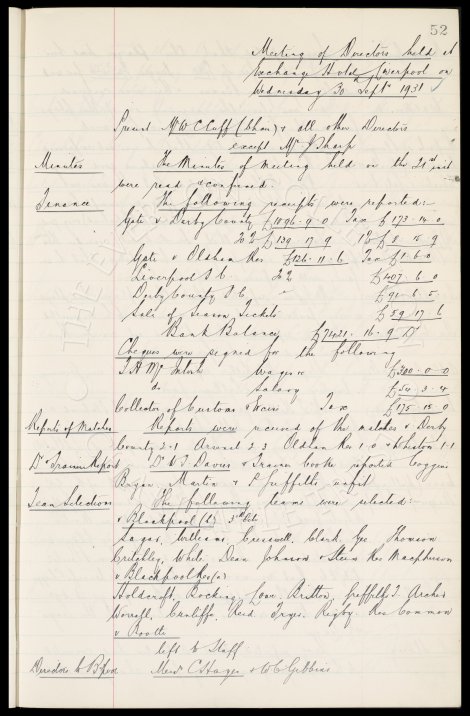 52
Meeting of Directors held at
Exchange Hotel Liverpool on
Wednesday 30 Sept 1931
Present Mr W C Cuff (Chair) & all other Directors
except Mr J Sharp
Minutes The Minutes of Meeting held on the 21st inst
were read & confirmed.
Finance The following receipts were reported:
Gate v Derby County £1896-9-0 Tax £173-14-0
£139-17-9 £8-15-9
Gate v Oldham Res £126-11-6 Tax £1-6-0
Liverpool F.C. £407-6-0
Derby County F C " £91-6-5
Sale of Season Tickets £59-17-6
Bank Balance £7421-16-9
Cheques were signed for the following
T. H. McIntosh Wages &c £300-0-0
do Salary £54-3-4
Collector of Customs & Excise Tax £175-15-0
Reports of Matches Reports were received of the matches v Derby
County 2-1 Arsenal 2-3 Oldham Res 1-0 & Whiston 1-1
Dr & Trainers Report Dr & J Davies & Trainer Cooke reported Coggins
Martin & P. Griffiths unfit
Team Selections The following teams were selected:
v Blackpool 3rd Octr
Sagar, Williams, Cresswell, Clark, Gee, Thomson
Critchley, White, Dean Johnson & Stein Res Macpherson
v Blackpool Res (a)
Holdcroft, Bocking, Lowe, Britton, Griffiths T. Archer
Worrall, Cunliffe, Reid, Fryer, Rigby. Res Common
v Bootle
left to Staff
Directors to B'pool Messrs C. Hayes & W C Gibbins